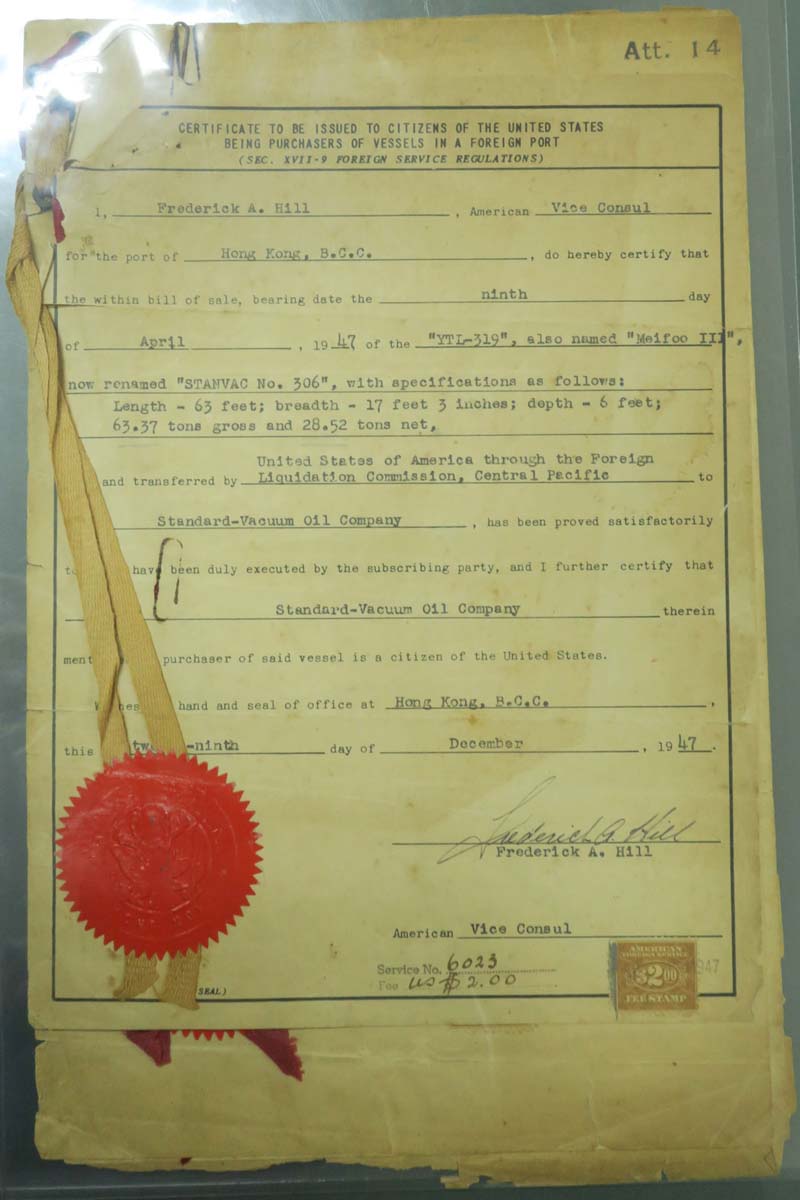 Att. 14
CERTIFICATE TO BE ISSUED TO CITIZENS OF THE UNITED STATES
BEING PURCHASERS OF VESSELS IN A FOREIGN PORT
(SEC. XVII-9 FOREIGN SERVICE REGULATIONS)
I, Frederick A. Hill, American Vice Consul
for the port of Hong Kong, B.C.C., do hereby certify that
the within bill of sale, bearing date the ninth day
of April, 1947 of the "YTL-319", also named "Meifoo III",
now renamed "STANVAC No. 306", with specifications as follows:
Length - 63 feet; breadth - 17 feet 3 inches; depth - 6 feet;
63.37 tons gross and 28.52 tons net,
United States of America through the Foreign
and transferred by Liquidation Commission, Central Pacific to
Standard-Vacuum Oil Company, has been proved satisfactorily
have been duly executed by the subscribing party, and I further certify that
Standard-Vacuum Oil Company therein
ment purchaser of said vessel is a citizen of the United States.
hand and seal of office at Hong Kong, B.C.C.,
this -ninth day of December, 1947.
Frederick A. Hill
Frederick A. Hill
American Vice Consul
Service No. 6023
Fee US $2.00
SEAL)
AMERICAN
FOREIGN SERVICE
$2.00
FEE STAMP
947